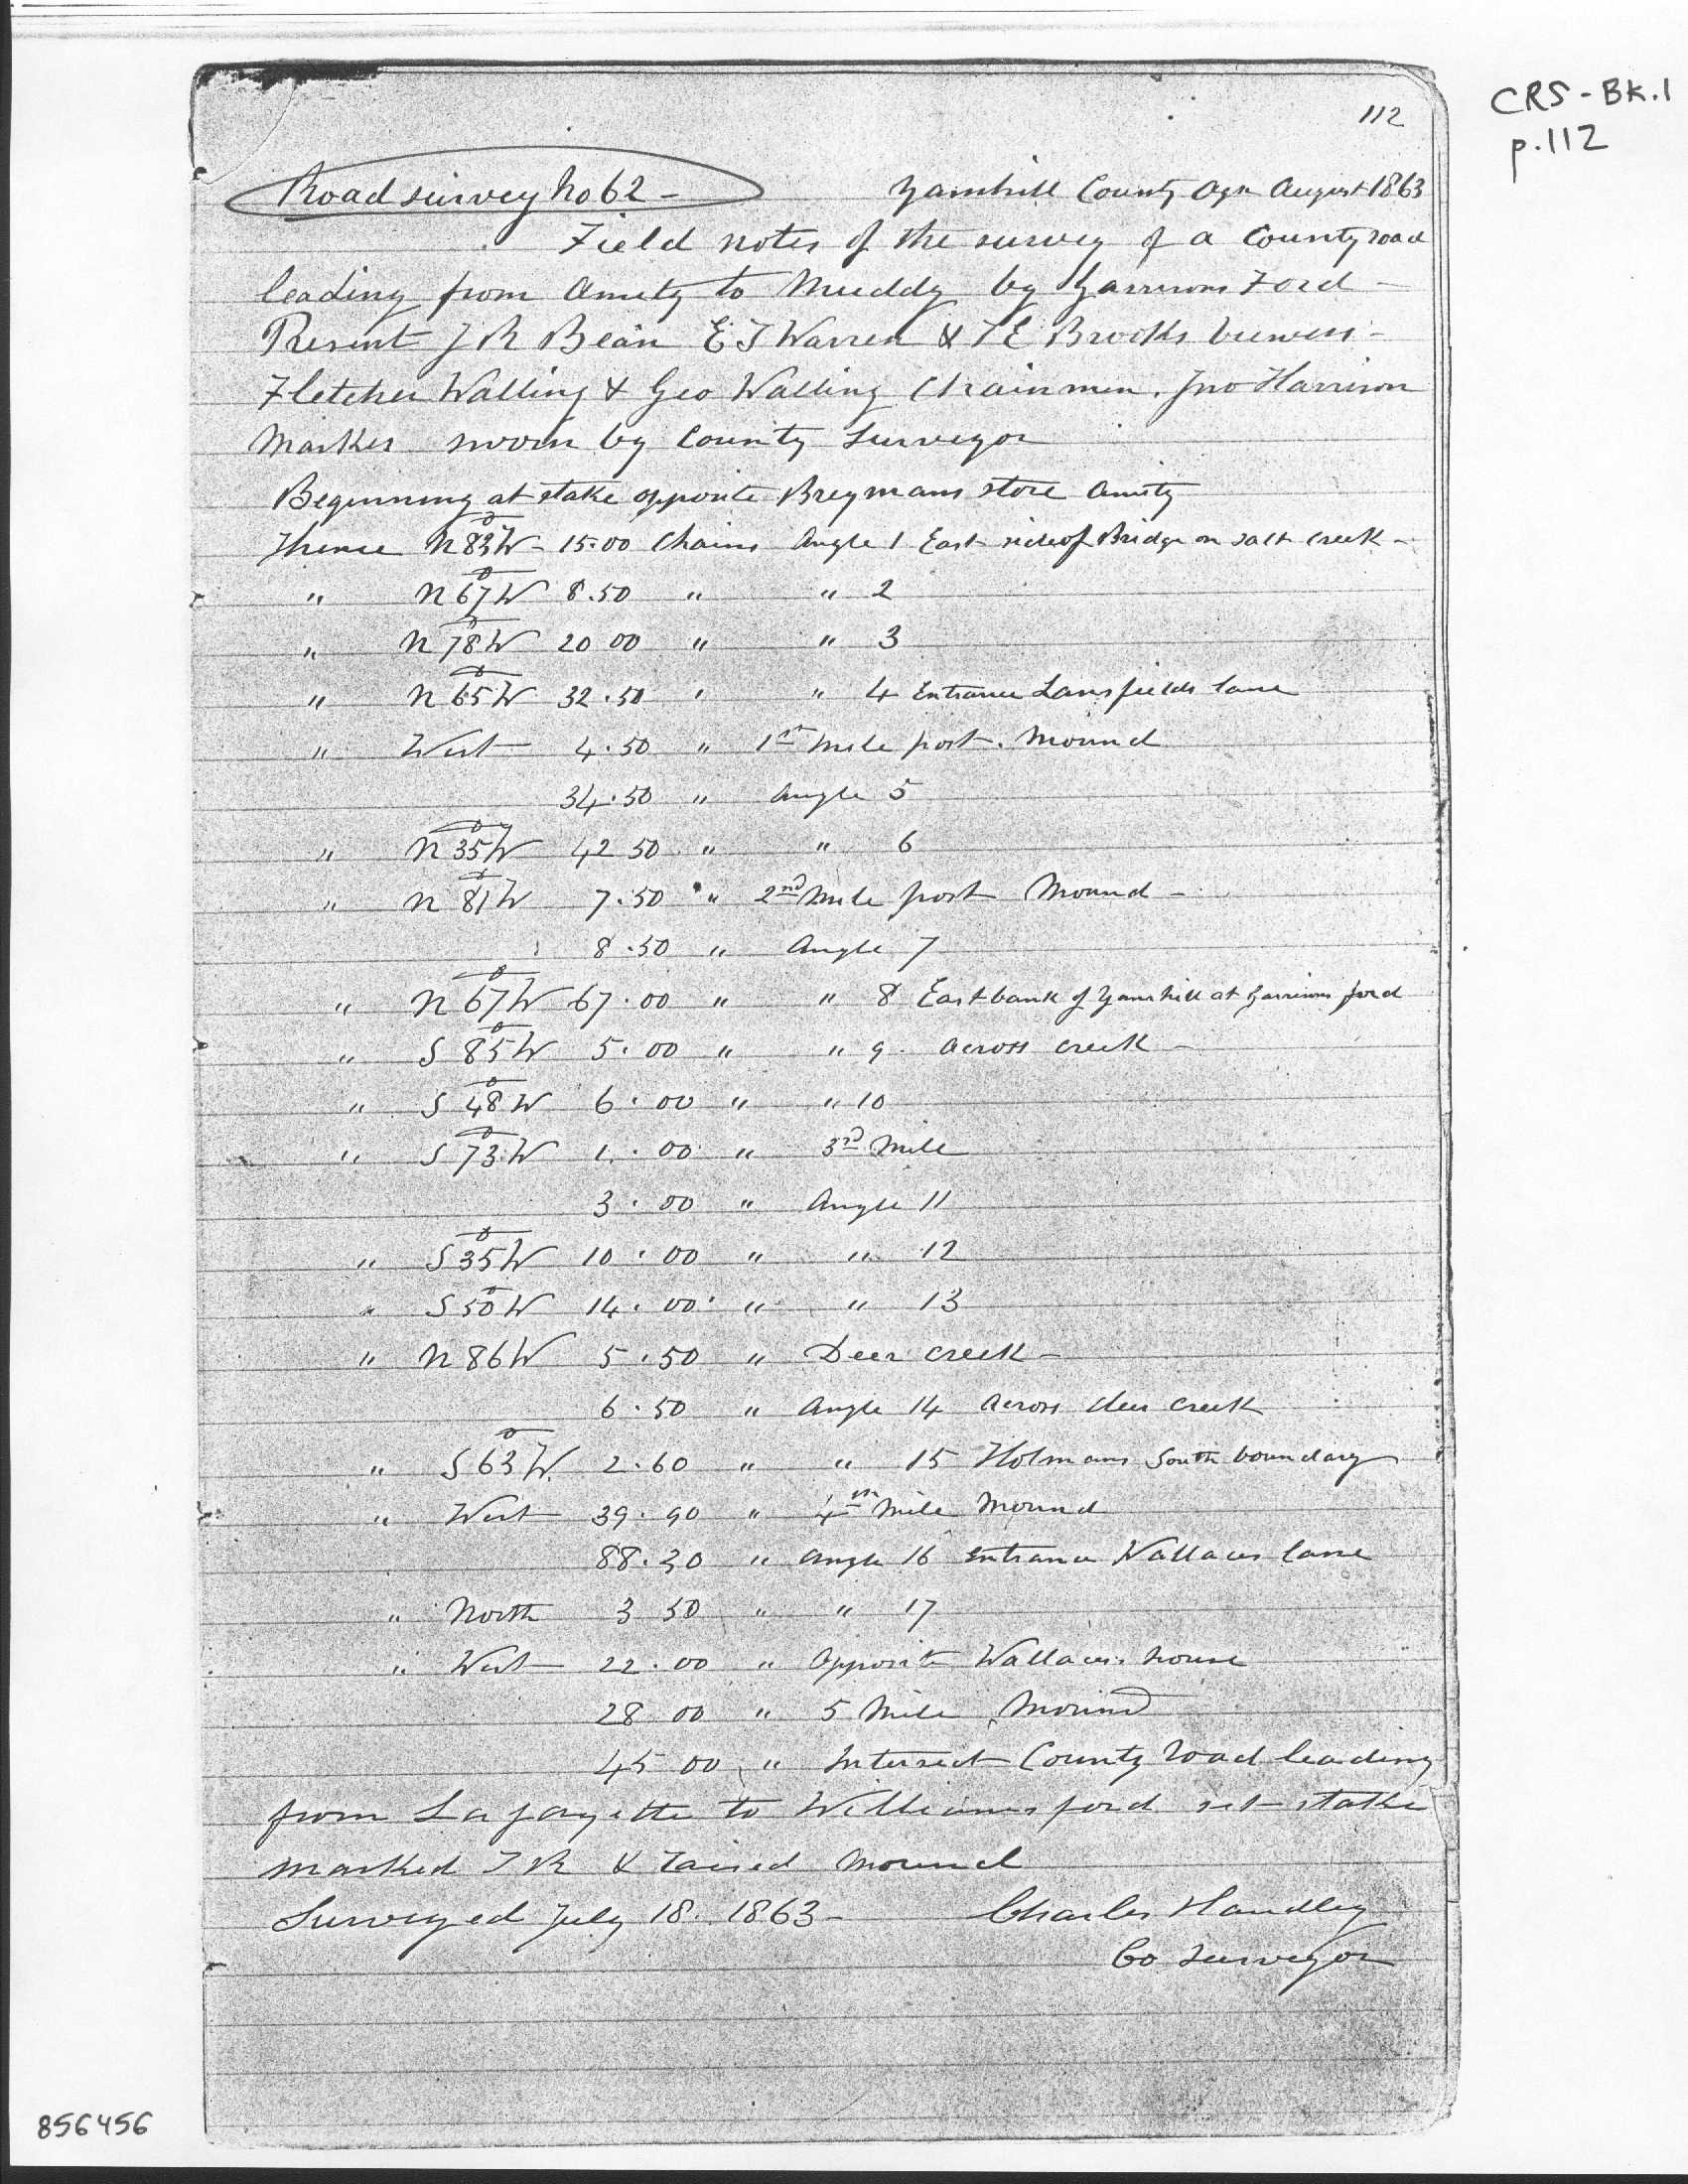 CRS-Bk.1
p.112
112
Road survey No 62 - Yamhill County Ogn August 1863
Field notes of the survey of a County road
leading from Amity to Muddy by Garrisons Ford -
Present J R Bean E T Warren & T E Brooks viewers -
Fletcher Walling & Geo Walling Chainmen. Jno Harrison
Marker sworn by County Surveyor
Beginning at stake opposite Breymans store Amity
Thence N 83 W - 15.00 Chains Angle 1 East side of Bridge on salt creek -
" N 67 W 8.50 " " 2
" N 78 W 20 00 " " 3
" N 65 W 32.50 " " 4 Entrance Lansfields lane
" West 4.50 " 1st Mile post. Mound
34.50 " Angle 5
" N 35 W 42 50 " " 6
" N 81 W 7.50 " 2nd Mile post Mound -
8.50 " Angle 7
" N 67 W 67.00 " " 8 East bank of Yamhill at Garrisons ford
" S 85 W 5.00 " " 9. across creek -
" S 48 W 6.00 " " 10
" S 73 W 1.00 " 3rd Mile
3.00 " Angle 11
" S 35 W 10.00 " " 12
" S 50 W 14.00 " " 13
" N 86 W 5.50 " Deer creek -
6.50 " Angle 14 across deer creek
" S 63 W. 2.60 " " 15 Holmans South boundary
" West 39.90 " 4th Mile Mound
88.30 " Angle 16 entrance Wallaces lane
" North 3 50 " " 17
" West 22.00 " Opposite Wallaces house
28 00 " 5 Mile Mound
45 00 " Intersect County road leading
from Lafayette to Williams ford set stake
marked T R & raised mound
Surveyed July 18. 1863 - Charles Handley
Co Surveyor
856456